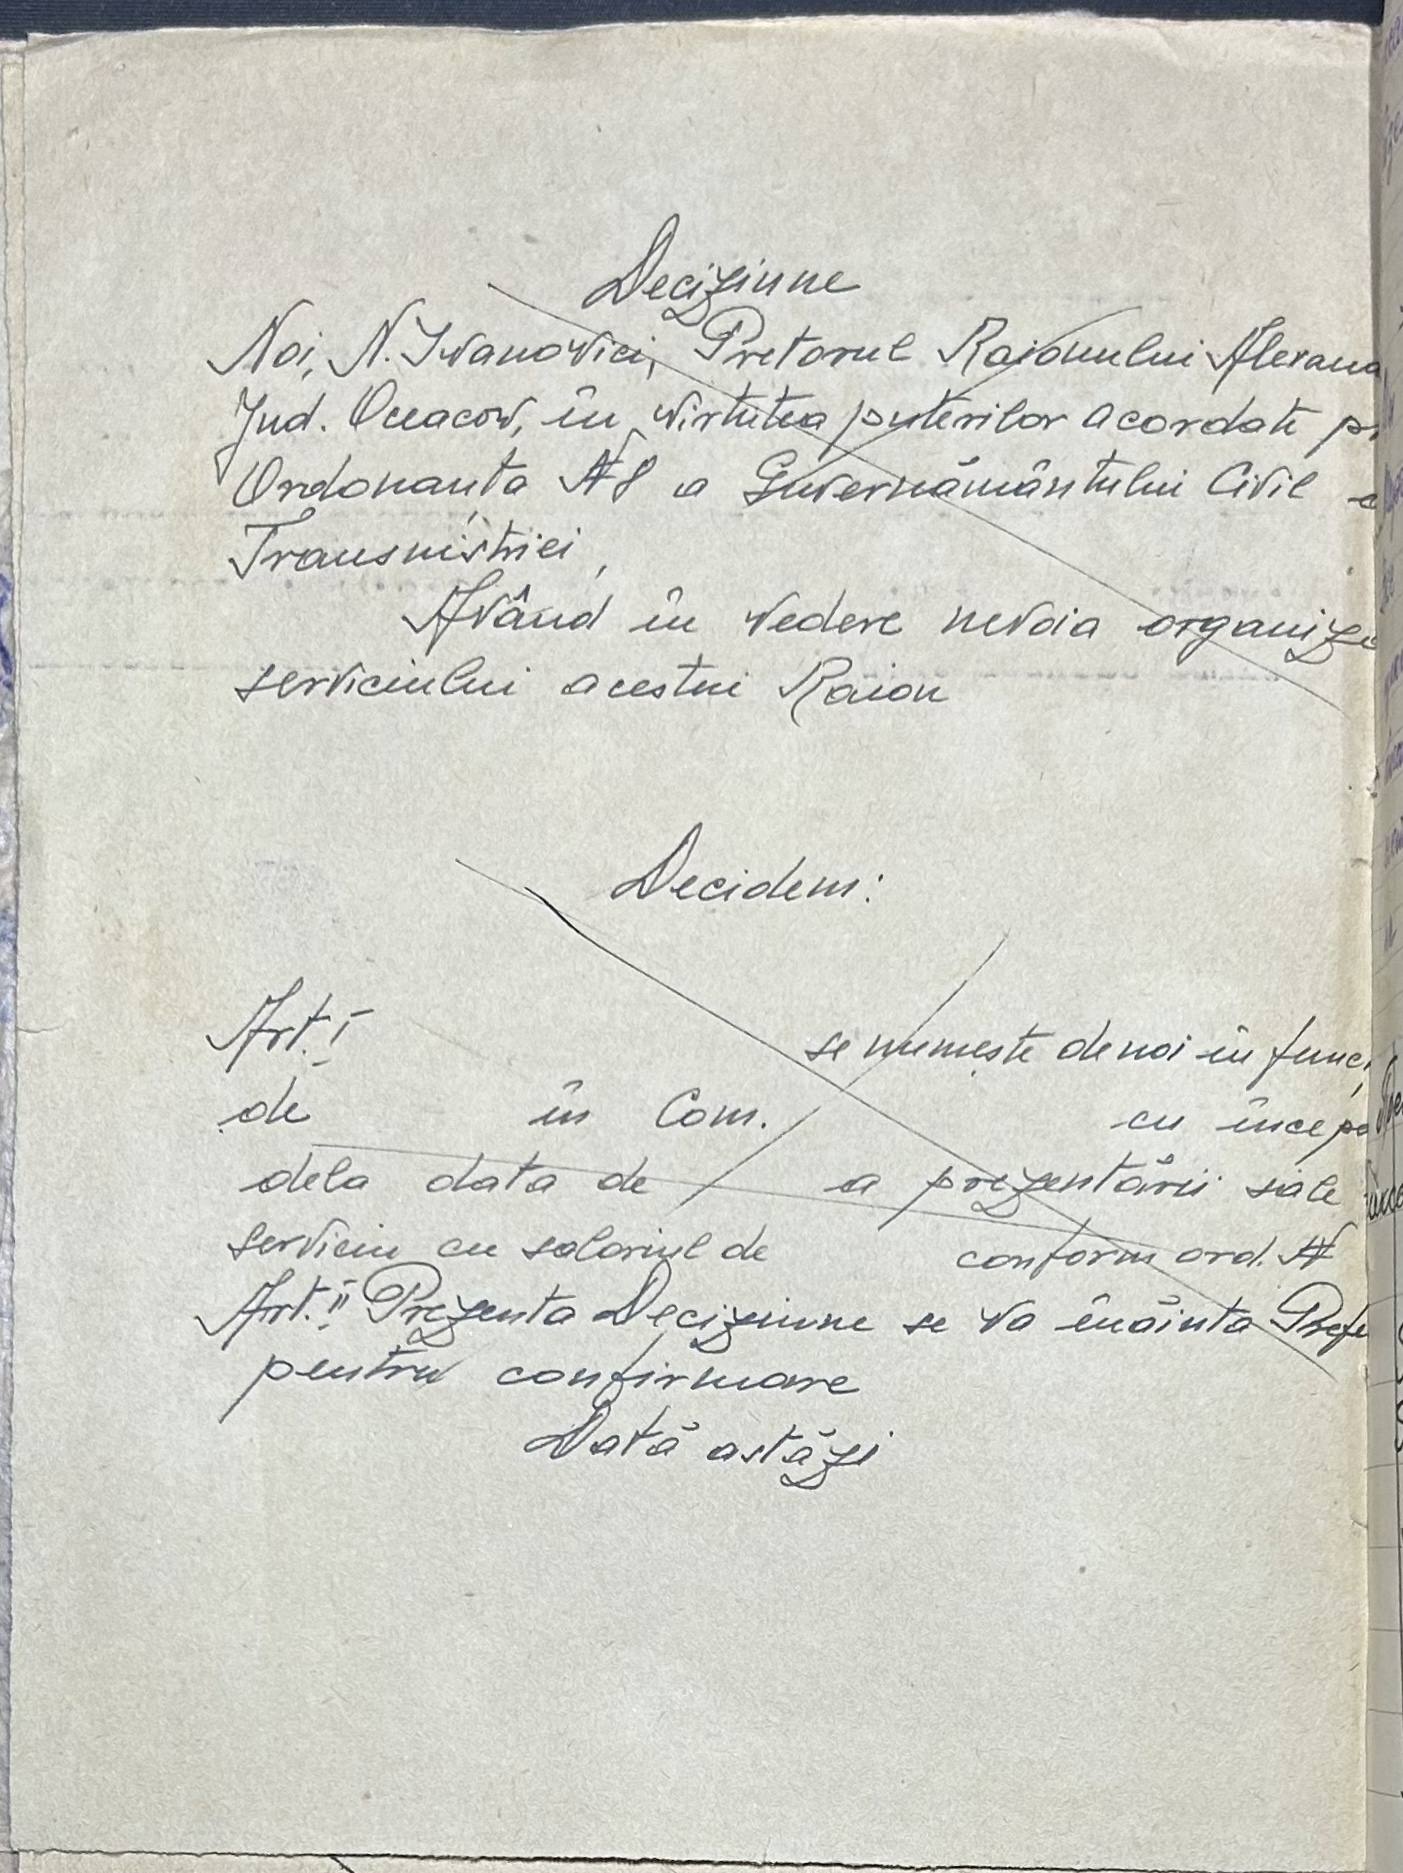 Deciziune
Noi, N. Ivanovici, Pretorul Raionului Alexand
Jud. Oceacov, în virtutea puterilor acordate pr
Ordonanța № 8 a Guvernământului Civil a
Transnistriei,
Având în vedere nevoia organiză
serviciului acestui Raion
Decidem:
Art. I se numește de noi în funcț
de în Com. cu începe
dela data de a prezentării sale
serviciu cu salariul de conform ord. №
Art. II Prezenta Deciziune se va înăinta Prefe
pentru confirmare
Dată astăzi